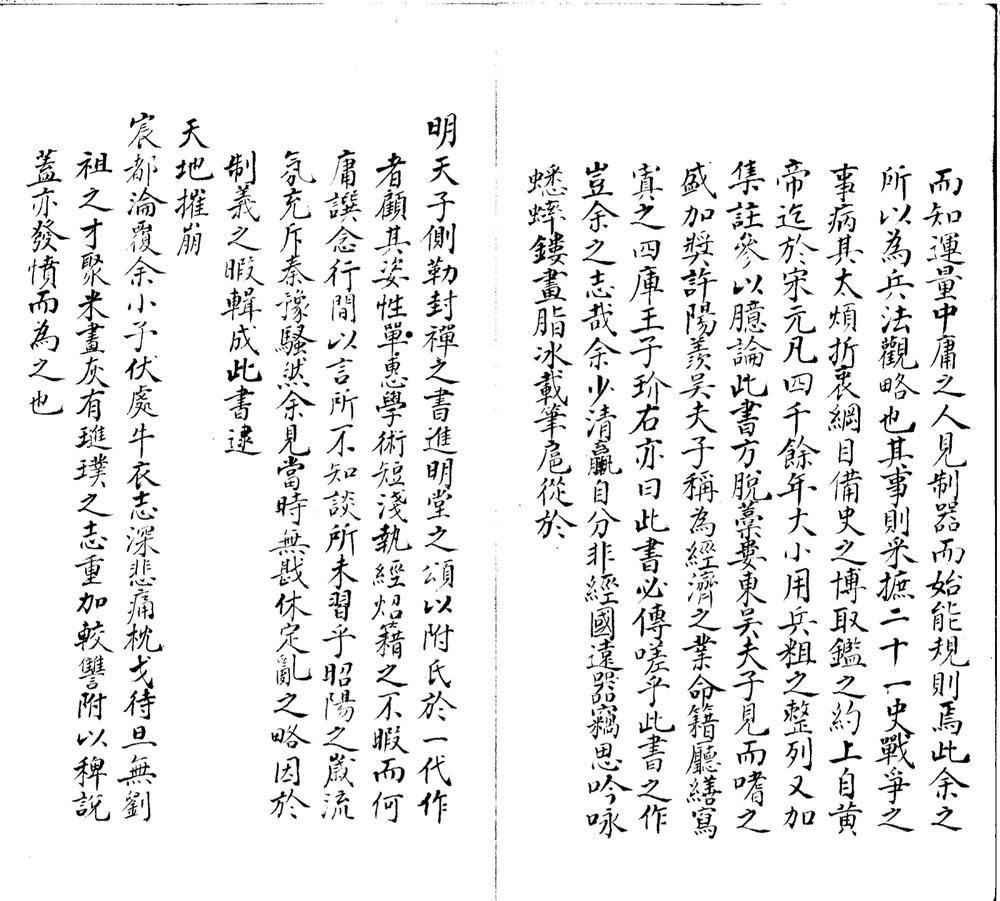 而知運量中庸之人見制器而始能規則焉此余之
所以為兵法觀略也其事則采摭二十一史戰爭之
事病其太煩折衷綱目備史之博取鑑之約上自黃
帝迄於宋元凡四千餘年大小用兵粗之整列又加
集註參以臆論此書方脫藁婁東吳夫子見而嗜之
盛加奬許陽羨吳夫子稱為經濟之業命籍廳繕寫
寘之四庫王子玠右亦曰此書必傳嗟乎此書之作
豈余之志哉余少清羸自分非經國遠器竊思吟咏
蟋蟀鏤畫脂冰載筆扈從於
明天子側勒封禪之書進明堂之頌以附氏於一代作
者顧其姿性單惠學術短淺執經炤籍之不暇而何
庸譔念行間以言所不知談所未習乎昭陽之歲流
氛充斥秦豫騷然余見當時無戡休定亂之略因於
制義之暇輯成此書逮
天地摧崩
宸都淪覆余小子伏處牛衣志深悲痛枕戈待旦無劉
祖之才聚米畫灰有璡璞之志重加較讐附以稗說
蓋亦發憤而為之也